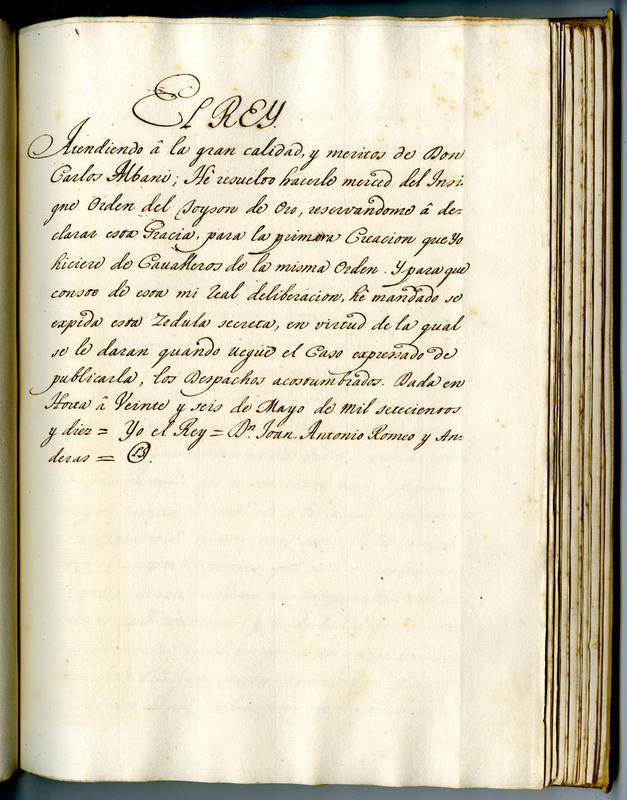 EL REY
Atendiendo â la gran calidad, y meritos de Don
Carlos Albani; Hê resuelto hacerle merced del Insi-
gne Orden del Toyson de Oro, reservandome â de-
clarar esta Gracia, para la primera Creacion que Yo
hiciere de Cavalleros de la misma Orden. Y para que
conste de esta mi Real deliberacion, hê mandado se
expida esta Zedula secreta, en virtud de la qual
se le daran quando llegue el Caso expressado de
publicarla, los Despachos acostumbrados. Dada en
Horta â Veinte y seis de Mayo de mil setecientos
y diez = Yo el Rey = Dn. Joan Antonio Romeo y An-
deras =